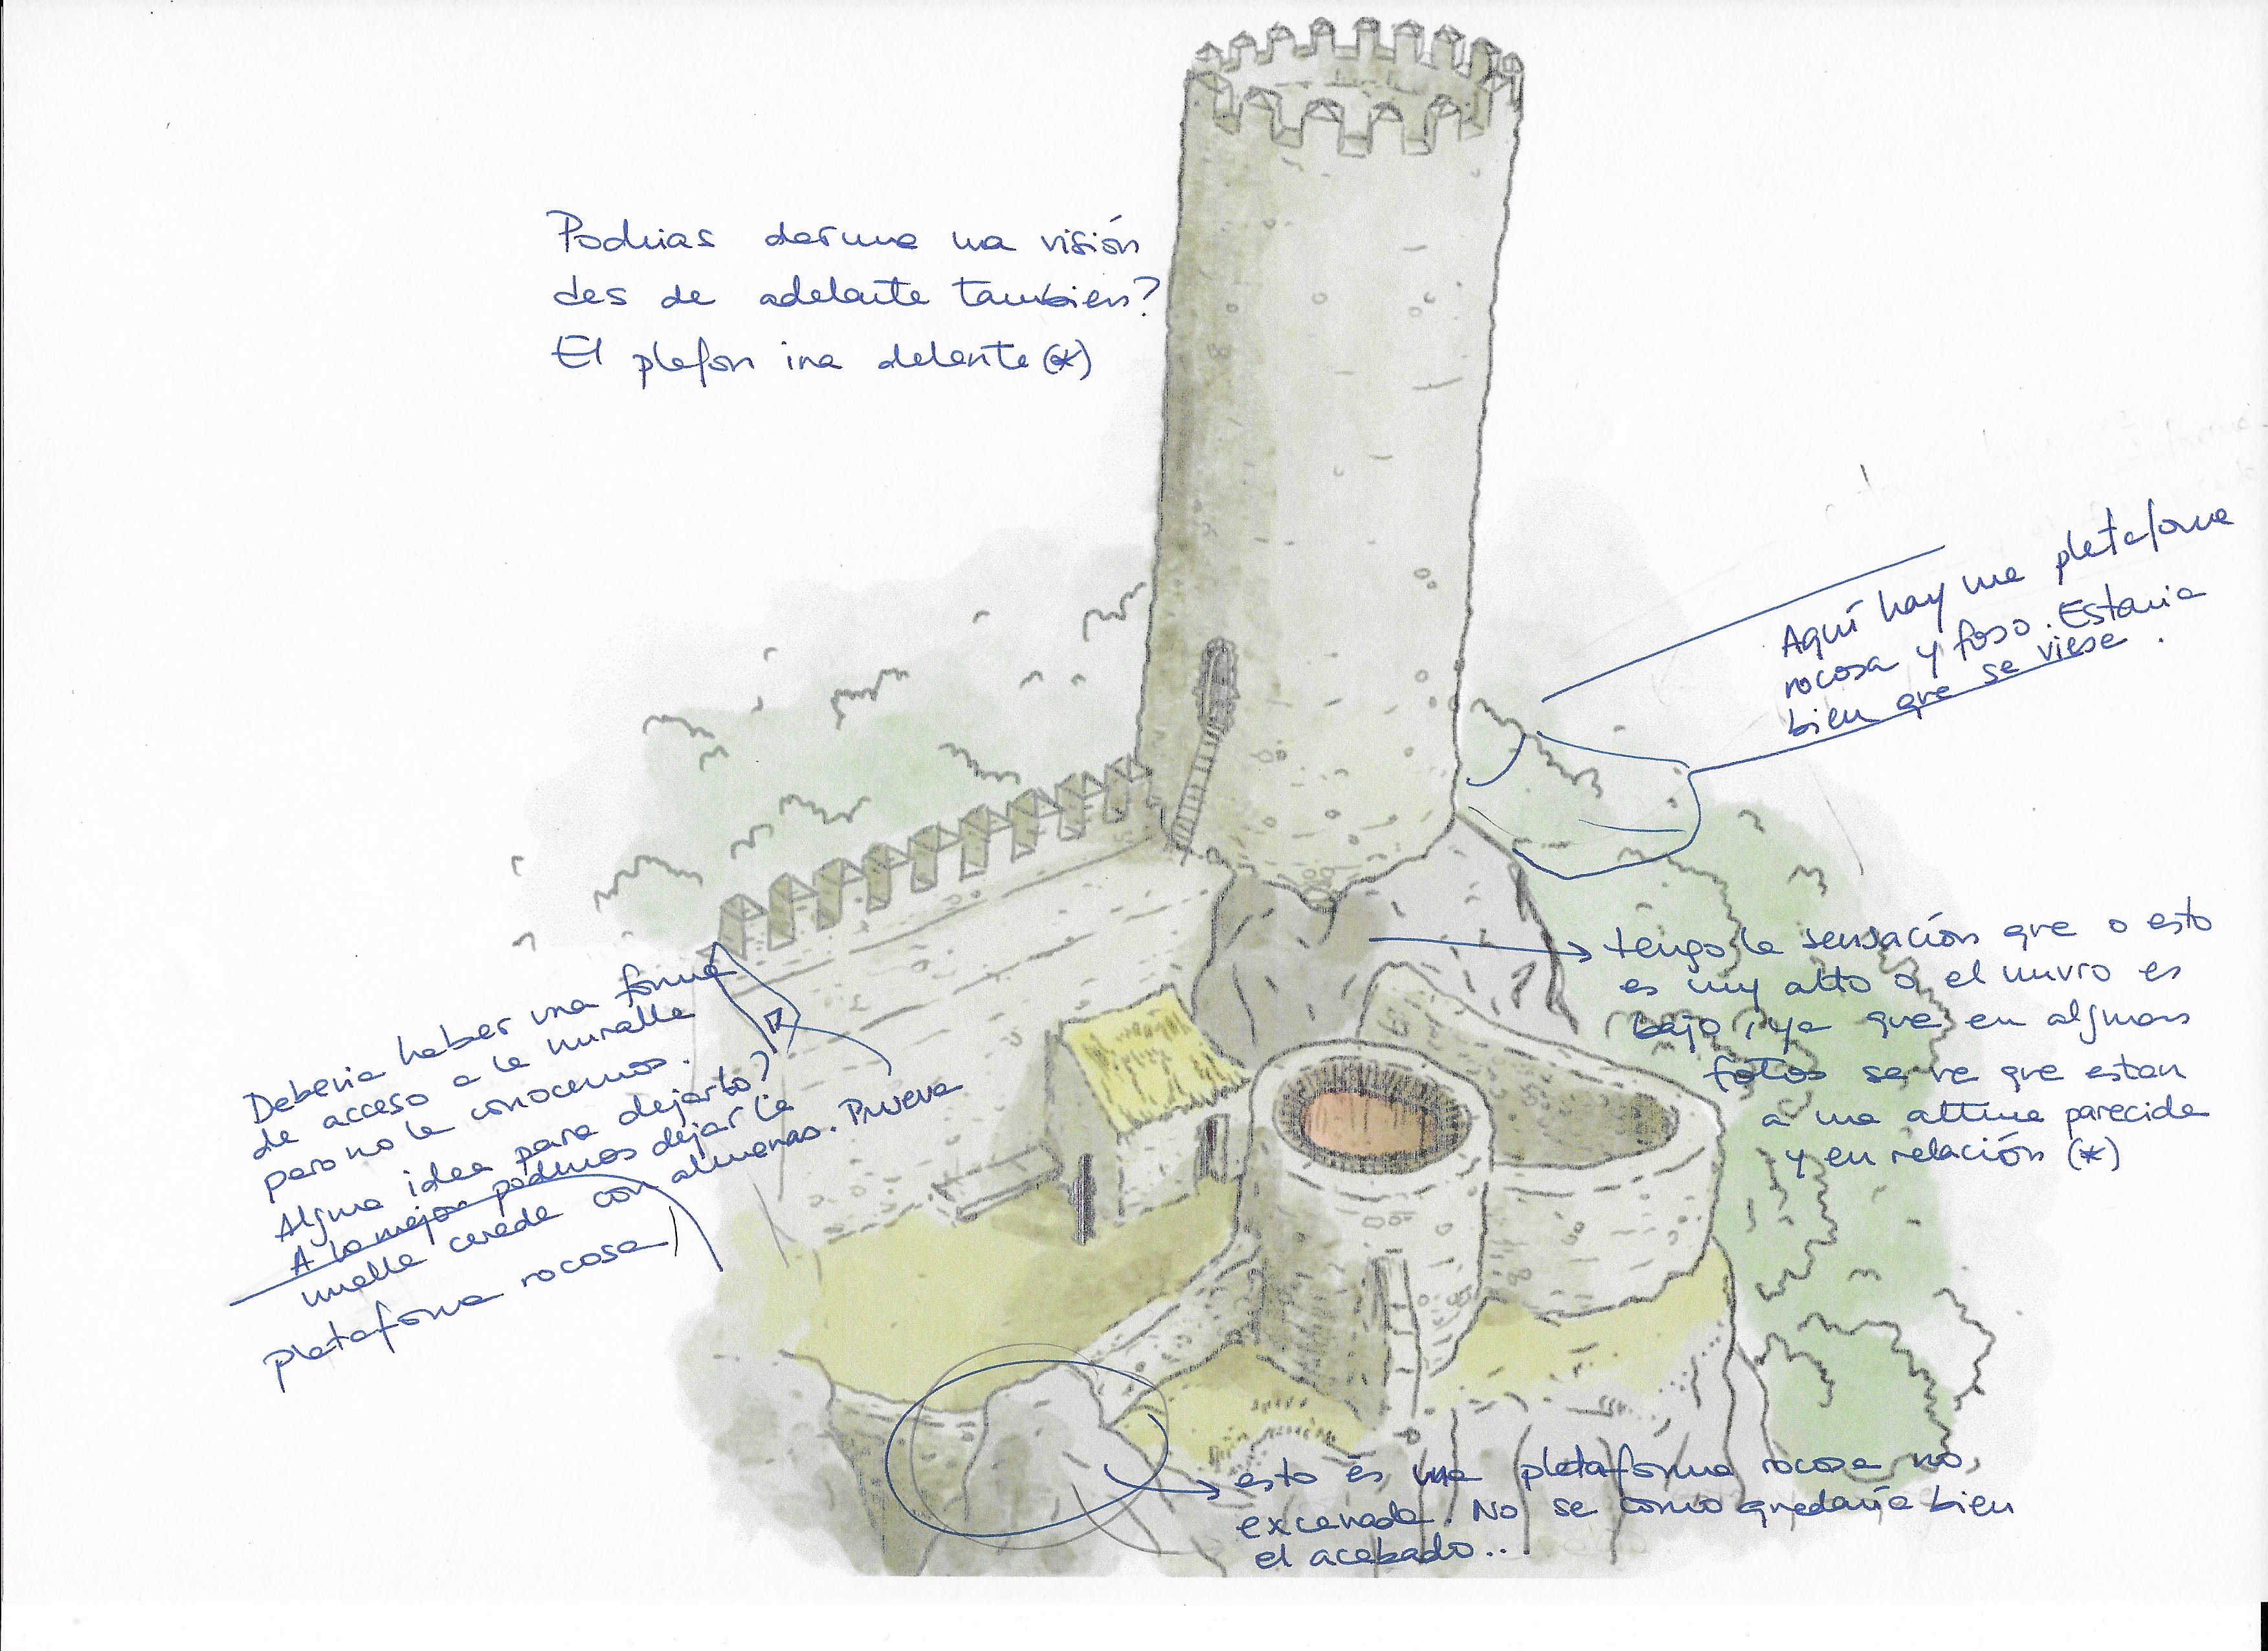 Podrias darme una visión
des de adelante tambien?
El plafon ira delante (*)
Aquí hay una plataforma
rocosa y foso. Estaria
bien que se viese.
tengo la sensación que o esto
es muy alto o el muro es
bajo, ya que en algunas
fotos se ve que estan
a una altura parecida
y en relación (*)
Deberia haber una forma
de acceso a la muralla
pero no la conocemos.
Alguna idea para dejarlo?
A lo mejor podemos dejar la
muralla cerrada con almenas. Prueva
plataforma rocosa
esto es una plataforma rocosa no
excavada. No se como quedaría bien
el acabado...